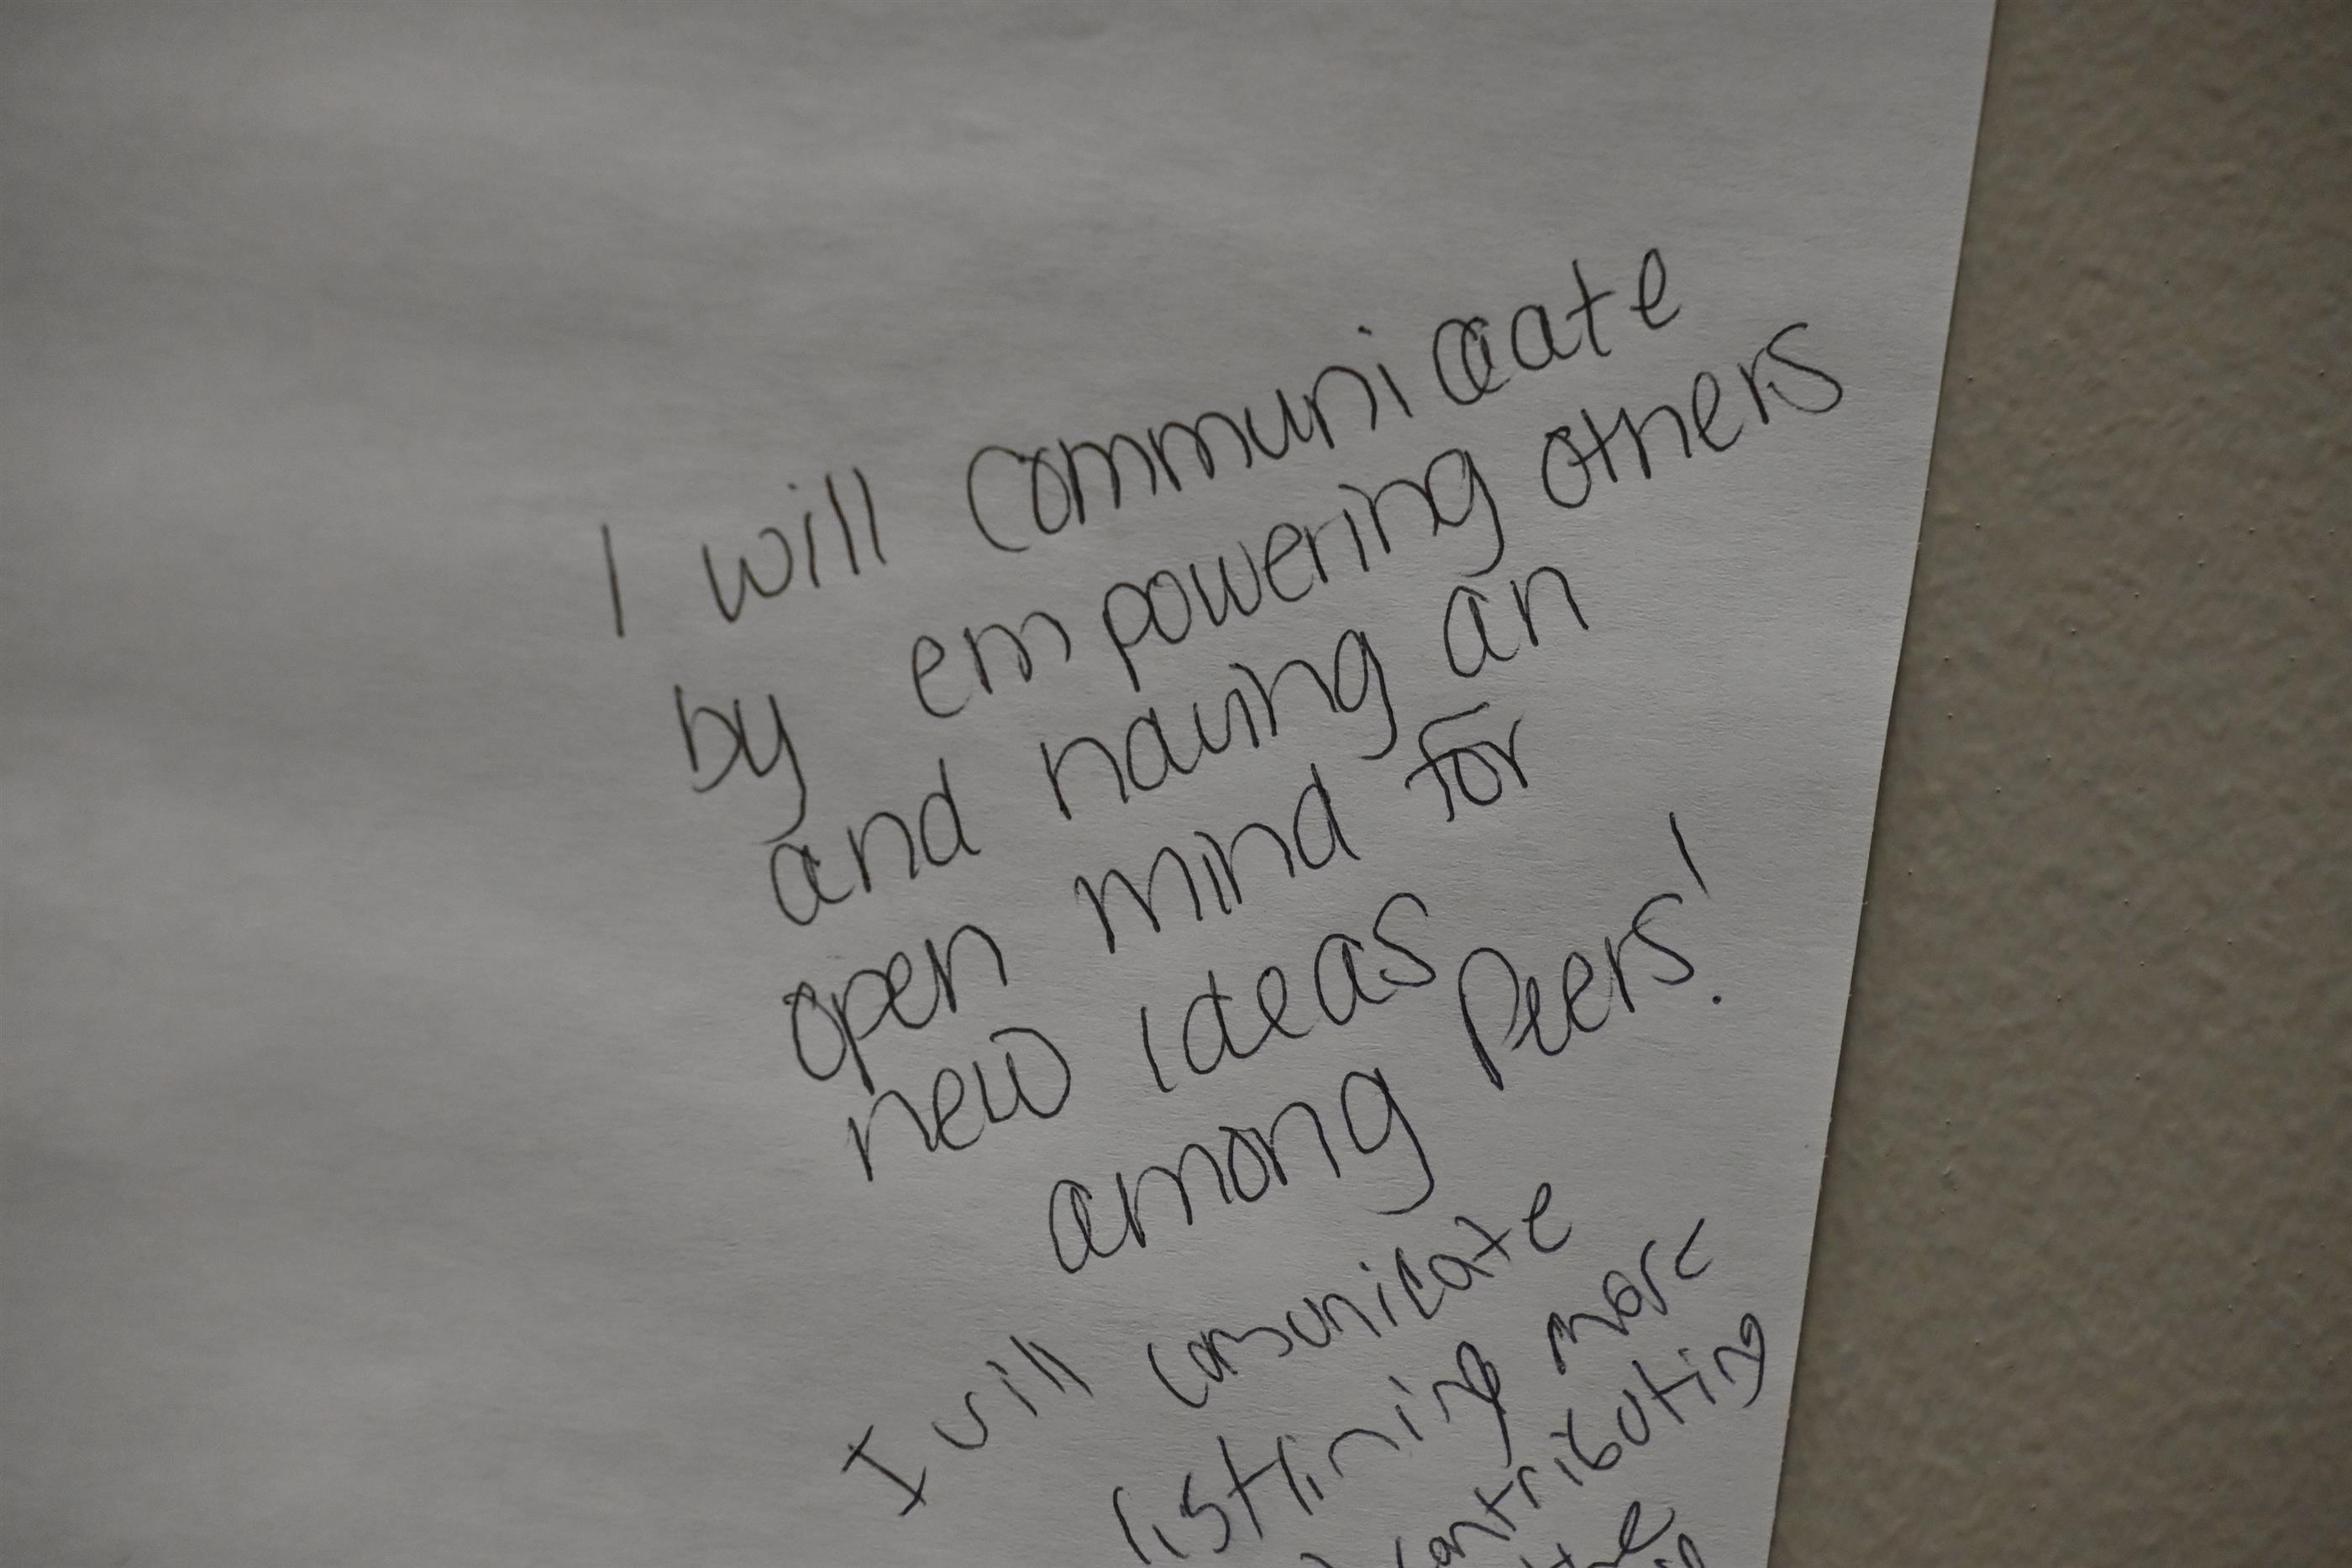 I will communicate
by empowering others
and having an
open mind for
new ideas
among Peers!
I will comunicate
more
contributing